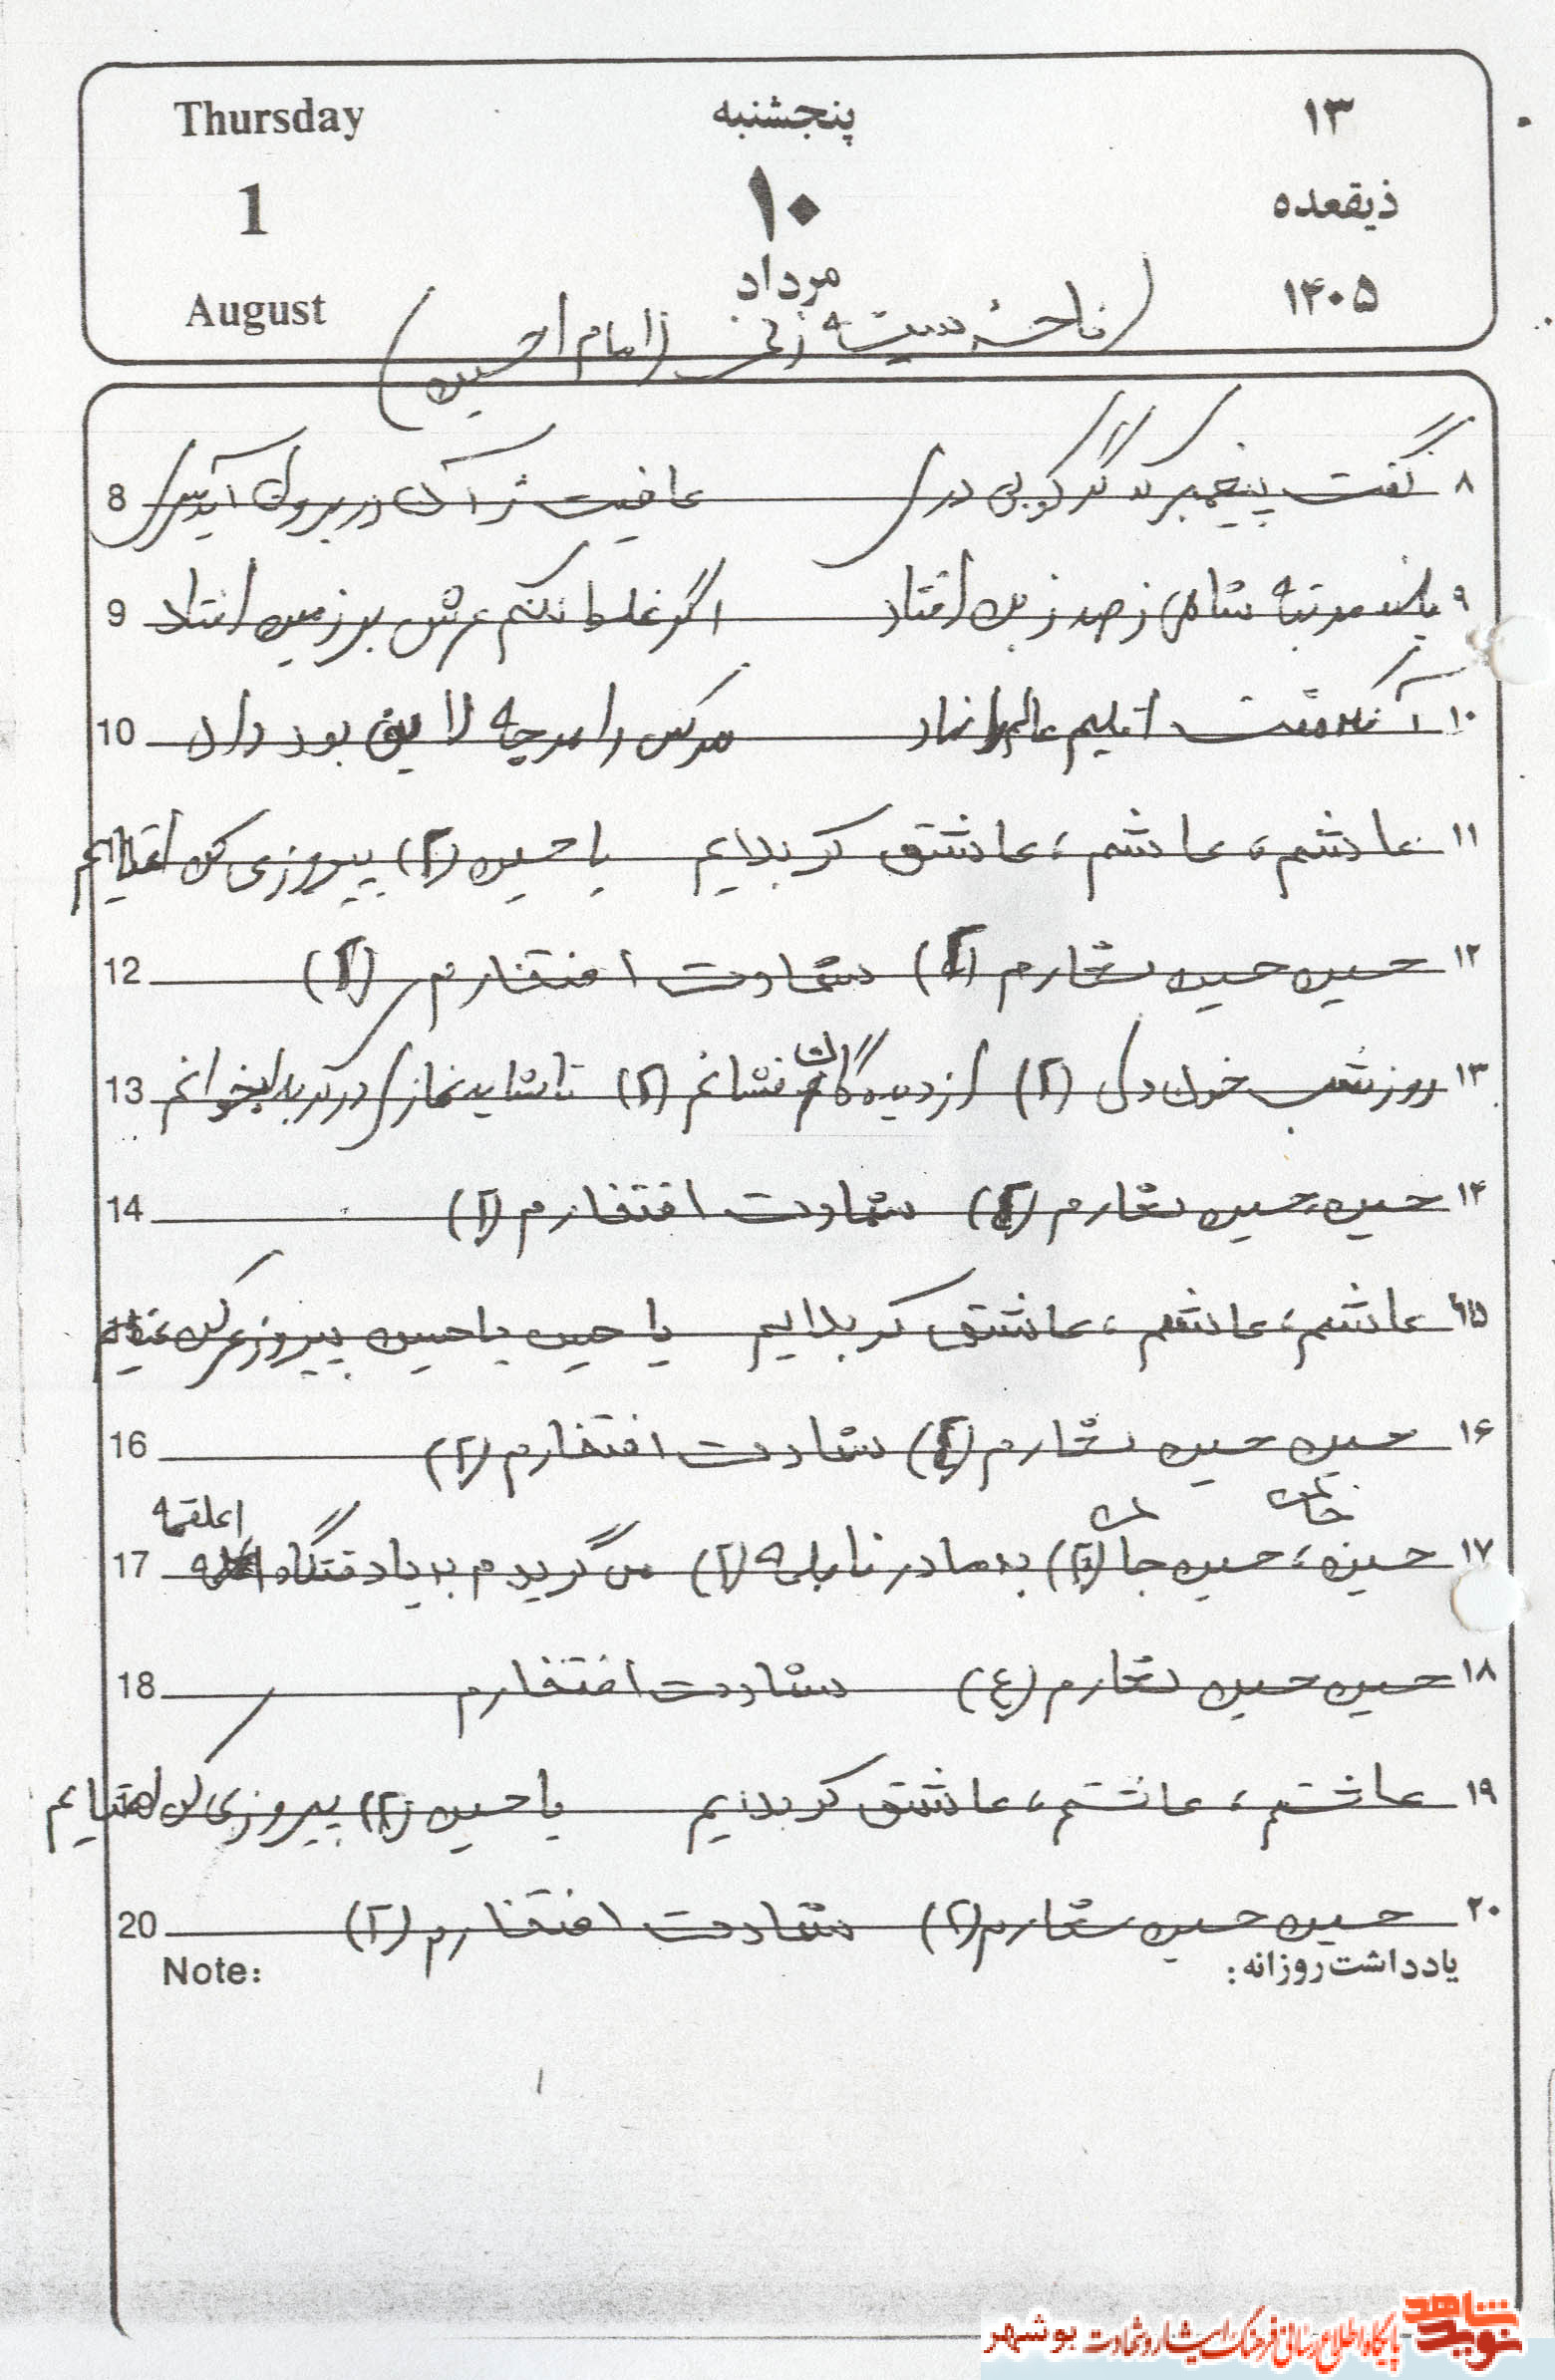 ۱۳ پنجشنبه Thursday
ذیقعده ۱۰ 1
۱۴۰۵ مرداد August
سینه زنی (امام حسین)
۸ گفت پیغمبر که گر کوبی دری عاقبت زآن در برون آید سری 8
۹ بلند مرتبه شاهی ز صدر زین افتاد اگر غلط نکنم عرش بر زمین افتاد 9
۱۰ آنکه هفت اقلیم عالم را نهاد هرکس را هرچه لایق بود داد 10
۱۱ عاشقم، عاشقم، عاشق کربلایم یا حسین (۲) پیروزی کن عطایم
۱۲ حسین حسین شعارم (۲) شهادت افتخارم (۲) 12
۱۳ روز شب خون دل (۲) از دیدگان فشانم (۲) تا شاید نمازی در کربلا بخوانم 13
۱۴ حسین حسین شعارم (۲) شهادت افتخارم (۲) 14
۱۵ عاشقم، عاشقم، عاشق کربلایم یا حسین یا حسین پیروزی کن عطایم
۱۶ حسین حسین شعارم (۲) شهادت افتخارم (۲) 16
۱۷ حسین، حسین جان (۲) به مادر (۲) می گریم به یاد علقمه 17
۱۸ حسین حسین شعارم (۴) شهادت افتخارم 18
۱۹ عاشقم، عاشقم، عاشق کربلایم یا حسین (۲) پیروزی کن عطایم
۲۰ حسین حسین شعارم (۲) شهادت افتخارم (۲) 20
یادداشت روزانه: Note:
نوید شاهد
پایگاه اطلاع رسانی فرهنگ ایثار و شهادت بوشهر